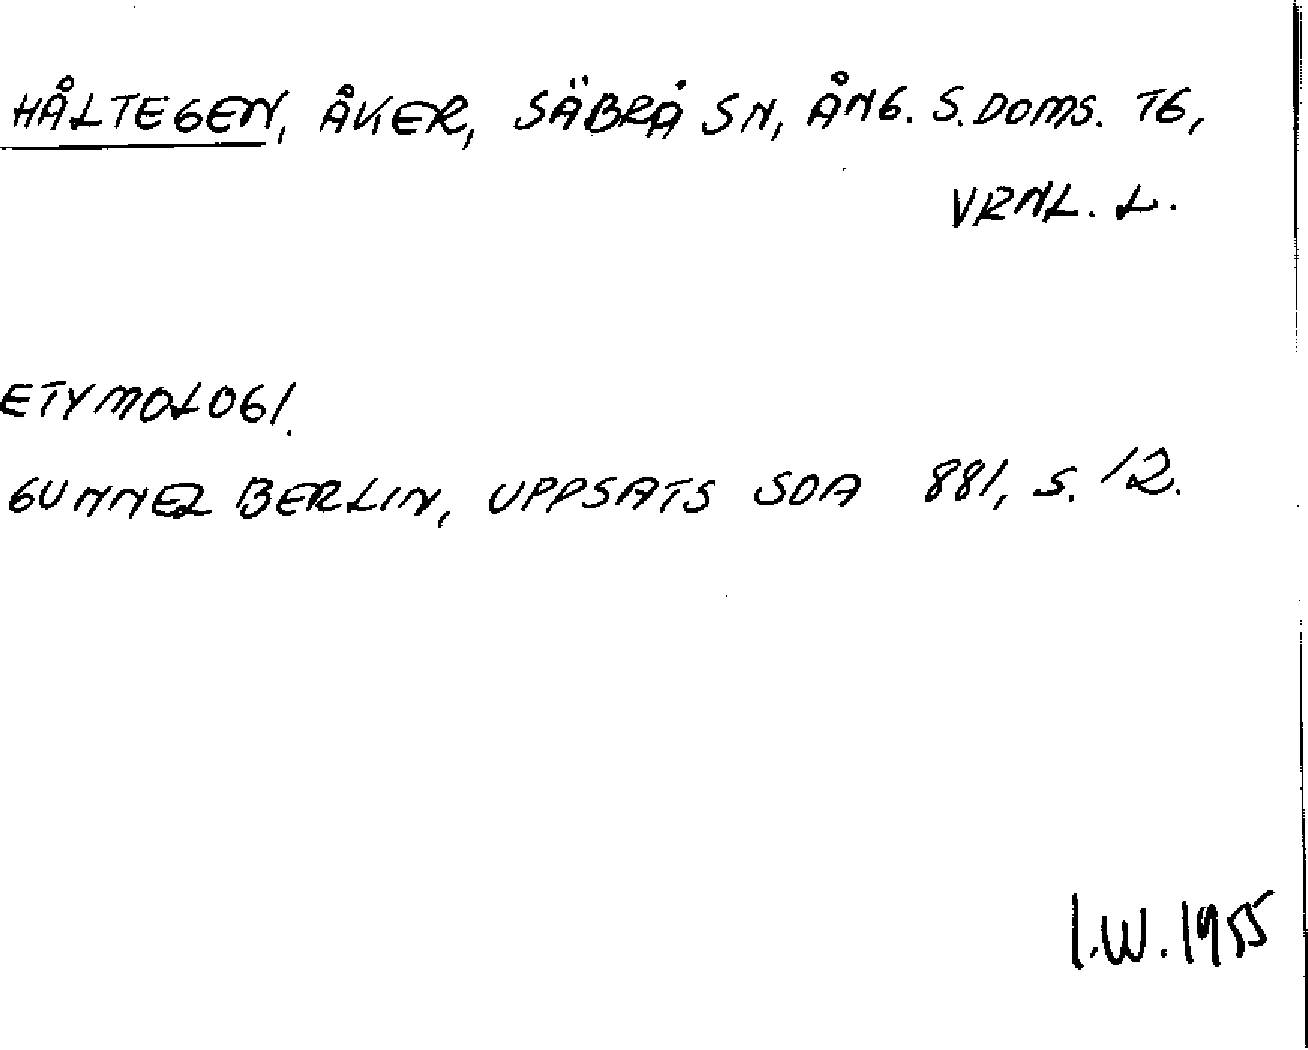 HÅLTEGEN, ÅKER, SÄBRÅ SN, ÅNG. S. DOMS. TG,
VRNL. L.
ETYMOLOGI.
GUNNEL BERLIN, UPPSATS SOA 881, S. 12.
I.W. 1955